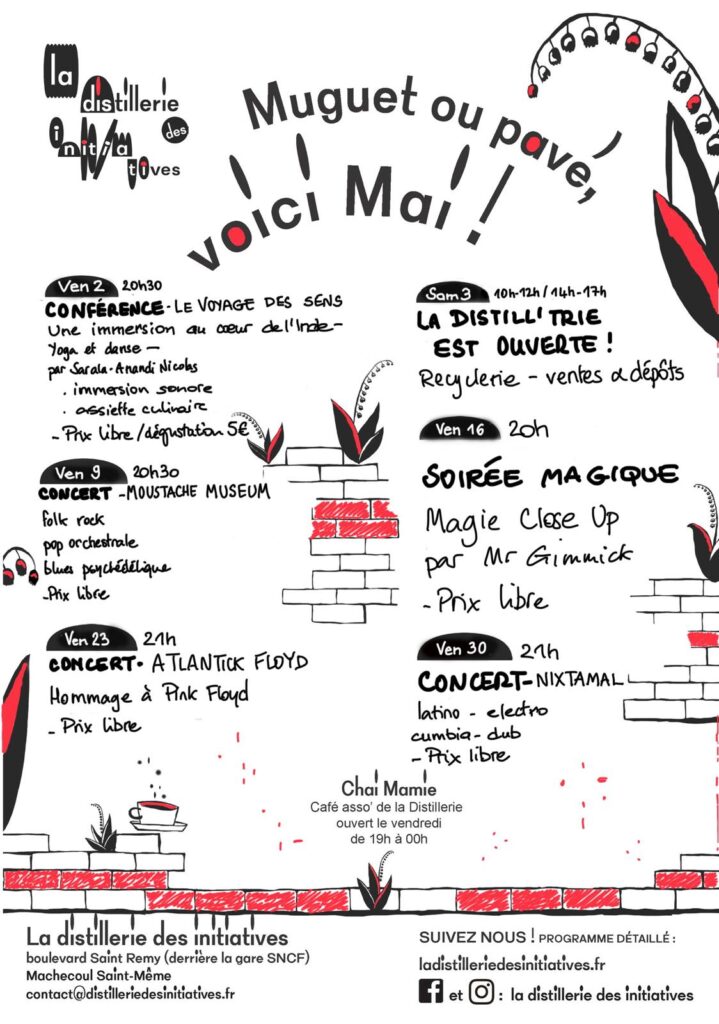 la
distillerie
des
initia
tives
Muguet ou pavé,
voici Mai !
Ven 2 20h30
CONFÉRENCE - LE VOYAGE DES SENS
Une immersion au cœur de l'Inde -
Yoga et danse -
par Sarala-Anandi Nicolas
. immersion sonore
. assiette culinaire
- Prix libre / dégustation 5€
Sam 3 10h-12h / 14h-17h
LA DISTILL'TRIE
EST OUVERTE !
Recyclerie - ventes & dépôts
Ven 9 20h30
CONCERT - MOUSTACHE MUSEUM
folk rock
pop orchestrale
blues psychédélique
- Prix libre
Ven 16 20h
SOIRÉE MAGIQUE
Magie Close Up
par Mr Gimmick
- Prix libre
Ven 23 21h
CONCERT - ATLANTICK FLOYD
Hommage à Pink Floyd
- Prix libre
Ven 30 21h
CONCERT - NIXTAMAL
latino - electro
cumbia - dub
- Prix libre
Chai Mamie
Café asso' de la Distillerie
ouvert le vendredi
de 19h à 00h
La distillerie des initiatives
boulevard Saint Remy (derrière la gare SNCF)
Machecoul Saint-Même
contact@distilleriedesinitiatives.fr
SUIVEZ NOUS ! PROGRAMME DÉTAILLÉ :
ladistilleriedesinitiatives.fr
et : la distillerie des initiatives